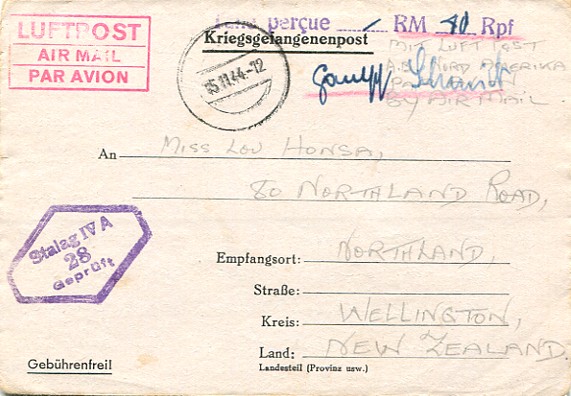 LUFTPOST
AIR MAIL
PAR AVION
Taxe perçue RM 40 Rpf
Kriegsgefangenenpost
MIT LUFTPOST
NORD AMERIKA
PAR AVION
BY AIR MAIL
15.11.44-12
An MISS LOU HONSA,
80 NORTHLAND ROAD,
Stalag IV A
28
Geprüft
Empfangsort: NORTHLAND,
Straße:
Kreis: WELLINGTON,
Land: NEW ZEALAND.
Landesteil (Provinz usw.)
Gebührenfrei!